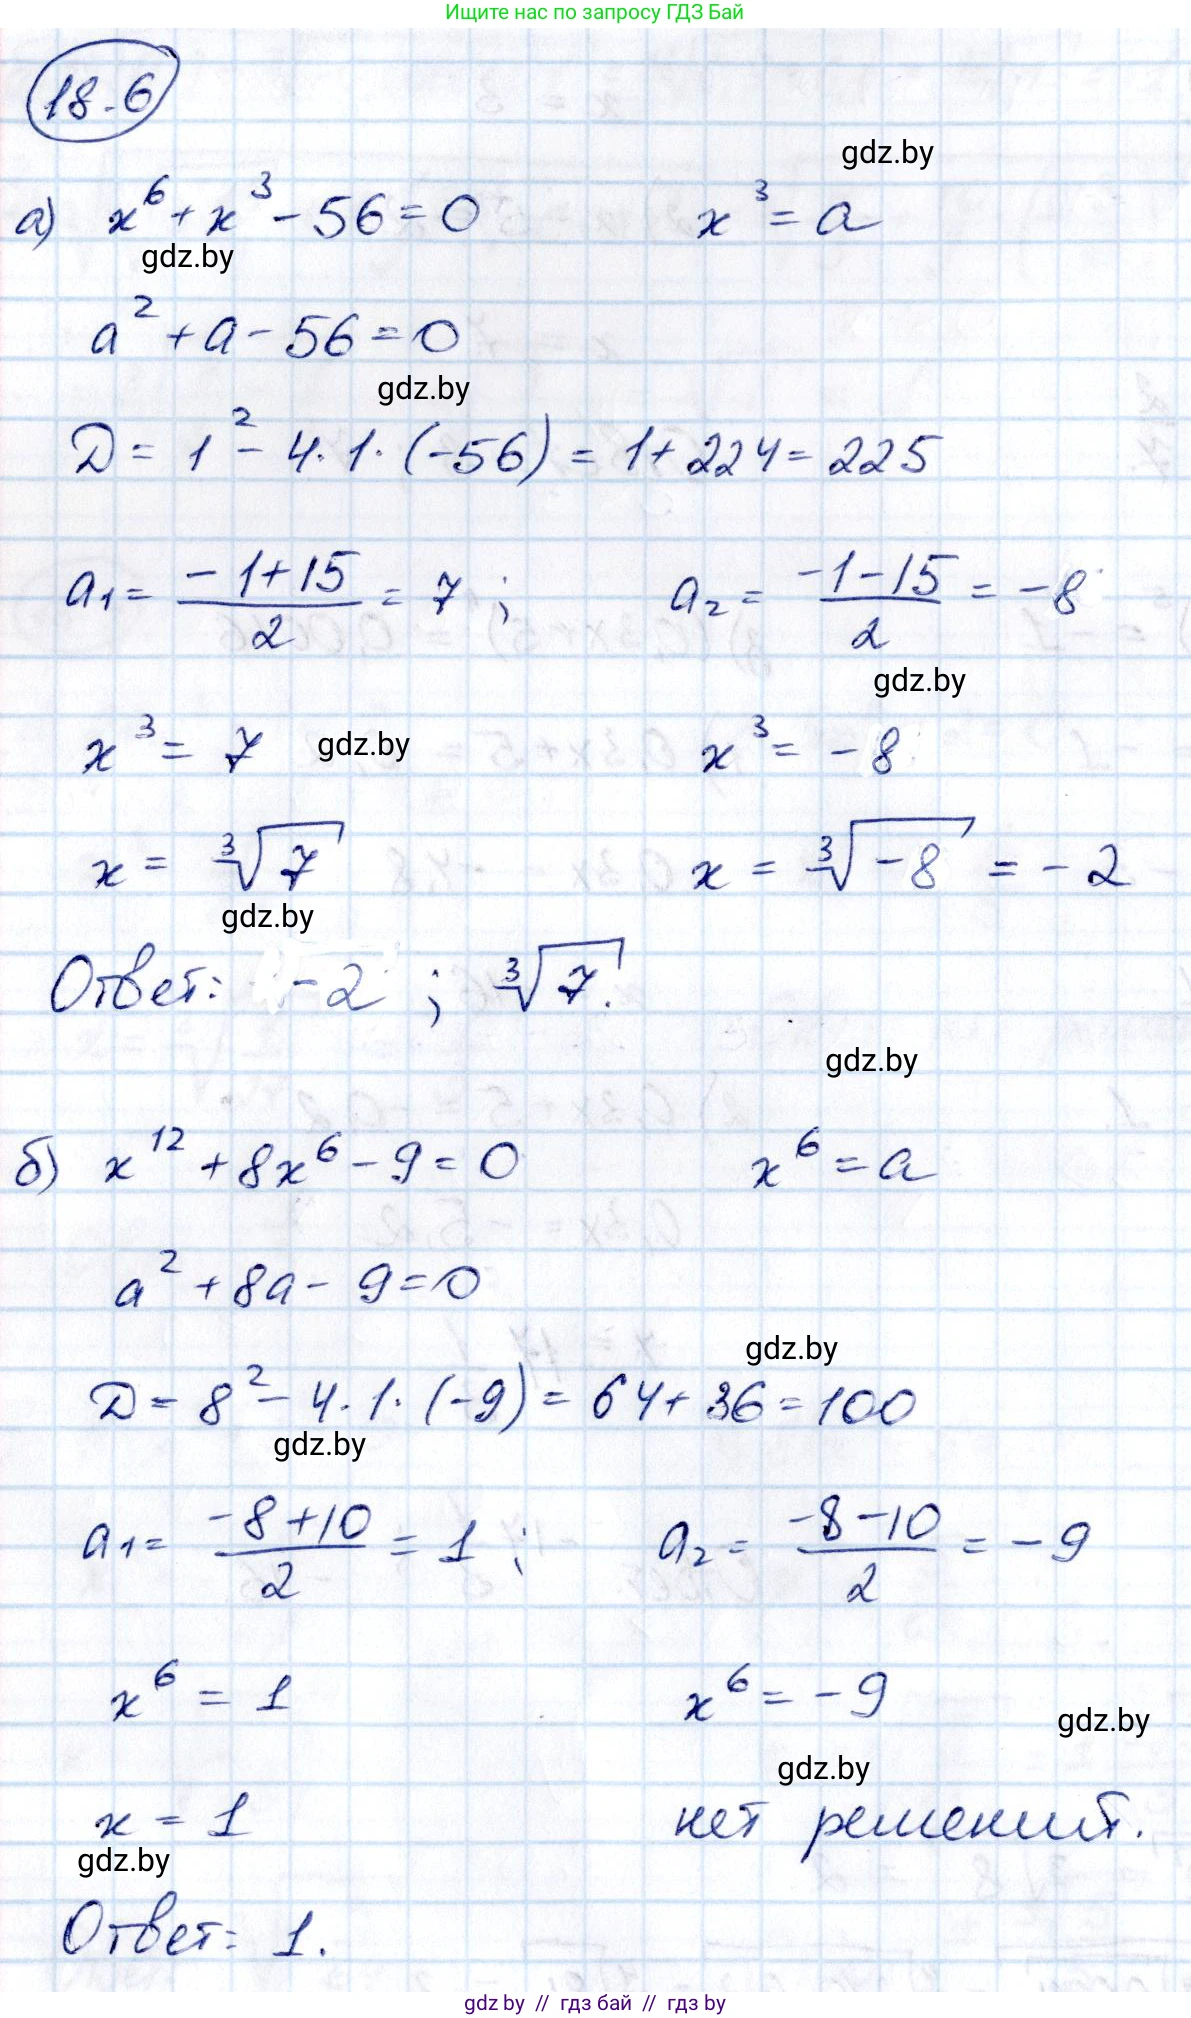 Ищите нас по запросу ГДЗ Бай
18-6
gdz.by
а) x⁶ + x³ - 56 = 0 x³ = a
gdz.by
a² + a - 56 = 0
gdz.by
D = 1² - 4·1·(-56) = 1 + 224 = 225
a₁ = (-1+15)/2 = 7 ; a₂ = (-1-15)/2 = -8
gdz.by
x³ = 7 gdz.by x³ = -8
x = ∛7 x = ∛-8 = -2
gdz.by
Ответ: -2 ; ∛7.
gdz.by
б) x¹² + 8x⁶ - 9 = 0 x⁶ = a
a² + 8a - 9 = 0
gdz.by
D = 8² - 4·1·(-9) = 64 + 36 = 100
gdz.by
a₁ = (-8+10)/2 = 1 ; a₂ = (-8-10)/2 = -9
x⁶ = 1 x⁶ = -9
gdz.by
gdz.by
x = 1 нет решений.
gdz.by
Ответ: 1.
gdz by // гдз бай // гдз by